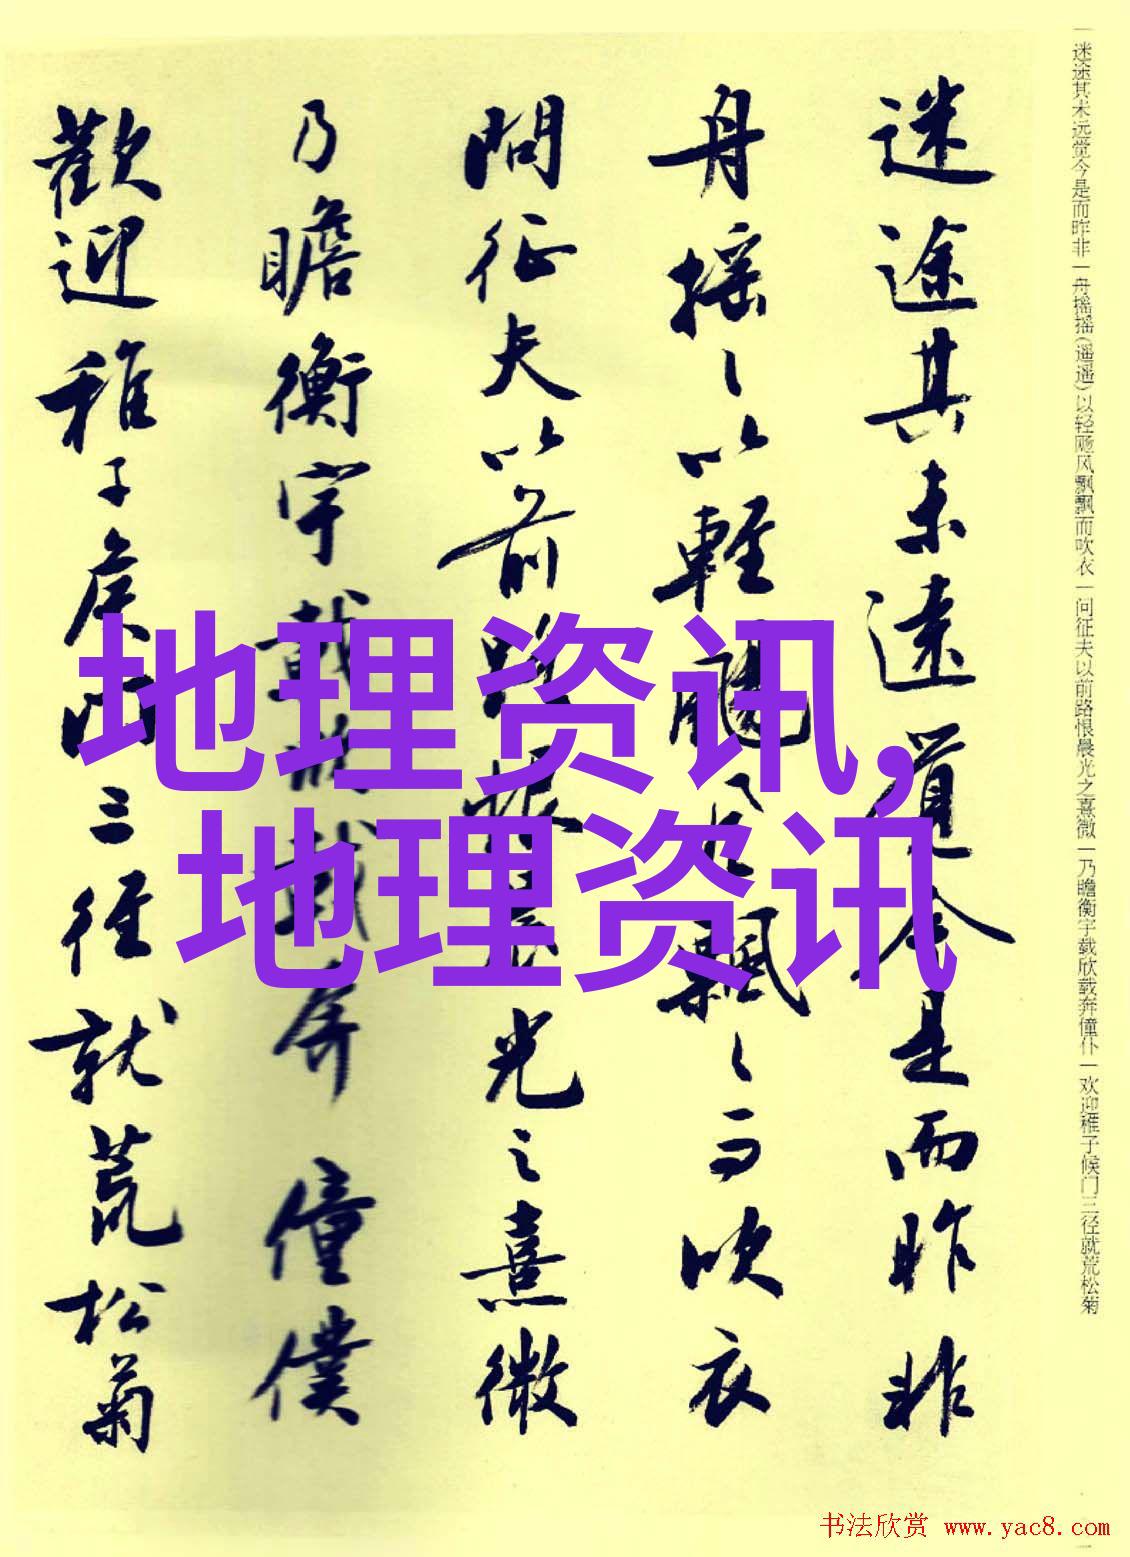 一迷途其未远觉今是而昨非一舟摇摇(遥遥)以轻飏风飘飘而吹衣一问征夫以前路恨晨光之熹微一乃瞻衡宇载欣载奔僮仆一欢迎稚子候门三径就荒松菊
迷途其未遠覺今是而昨非
舟摇〻以輕颺風飄〻而吹衣
問征夫以前路恨晨光之熹微
乃瞻衡宇載欣載奔僮僕
歡迎稚子候門三徑就荒松菊
地理资讯,
地理资讯
书法欣赏 www.yac8.com